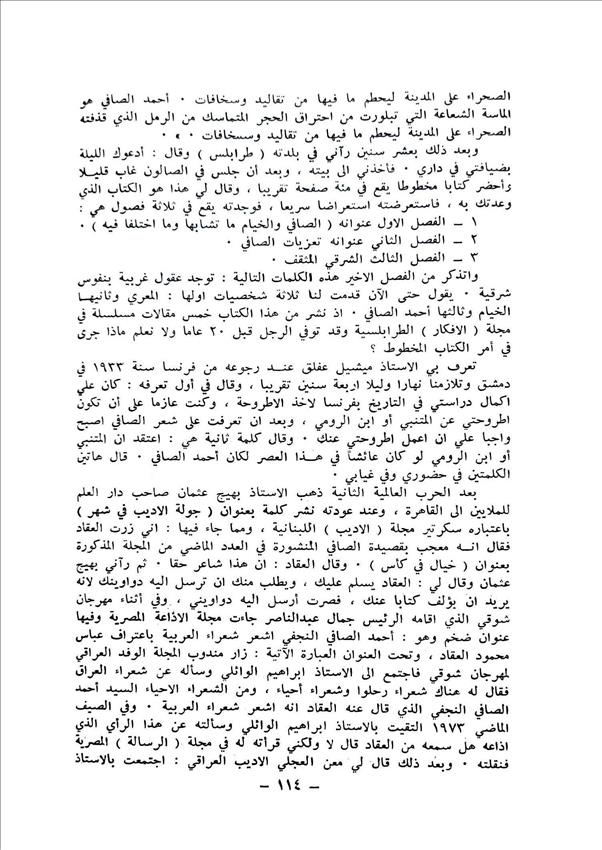 الصحراء على المدينة ليحطم ما فيها من تقاليد وسخافات ٠ أحمد الصافي هو
الماسة الشعاعة التي تبلورت من احتراق الحجر المتماسك من الرمل الذي قذفته
الصحراء على المدينة ليحطم ما فيها من تقاليد وسسخافات ٠ » ٠
وبعد ذلك بعشر سنين رآني في بلدته ( طرابلس ) وقال : أدعوك الليلة
بضيافتي في داري ٠ فأخذني الى بيته ، وبعد أن جلس في الصالون غاب قليلا
وأحضر كتابا مخطوطا يقع في مئة صفحة تقريبا ، وقال لي هذا هو الكتاب الذي
وعدتك به ، فاستعرضته استعراضا سريعا ، فوجدته يقع في ثلاثة فصول هي :
١ – الفصل الاول عنوانه ( الصافي والخيام ما تشابها وما اختلفا فيه ) ٠
٢ – الفصل الثاني عنوانه تعزيات الصافي ٠
٣ – الفصل الثالث الشرقي المثقف ٠
واتذكر من الفصل الاخير هذه الكلمات التالية : توجد عقول غربية بنفوس
شرقية ٠ يقول حتى الآن قدمت لنا ثلاثة شخصيات اولها : المعري وثانيها
الخيام وثالثها أحمد الصافي ٠ اذ نشر من هذا الكتاب خمس مقالات مسلسلة في
مجلة ( الافكار ) الطرابلسية وقد توفي الرجل قبل ٢٠ عاما ولا نعلم ماذا جرى
في أمر الكتاب المخطوط ؟
تعرف بي الاستاذ ميشيل عفلق عند رجوعه من فرنسا سنة ١٩٣٣ في
دمشق وتلازمنا نهارا وليلا اربعة سنين تقريبا ، وقال في أول تعرفه : كان علي
اكمال دراستي في التاريخ بفرنسا لاخذ الاطروحة ، وكنت عازما على أن تكون
اطروحتي عن المتنبي أو ابن الرومي ، وبعد ان تعرفت على شعر الصافي اصبح
واجبا علي ان اعمل اطروحتي عنك ٠ وقال كلمة ثانية هي : اعتقد ان المتنبي
أو ابن الرومي لو كان عائشا في هذا العصر لكان أحمد الصافي ٠ قال هاتين
الكلمتين في حضوري وفي غيابي ٠
بعد الحرب العالمية الثانية ذهب الاستاذ بهيج عثمان صاحب دار العلم
للملايين الى القاهرة ، وعند عودته نشر كلمة بعنوان ( جولة الاديب في شهر )
باعتباره سكرتير مجلة ( الاديب ) اللبنانية ، ومما جاء فيها : اني زرت العقاد
فقال انه معجب بقصيدة الصافي المنشورة في العدد الماضي من المجلة المذكورة
بعنوان ( خيال في كأس ) ٠ وقال العقاد : ان هذا شاعر حقا ٠ ثم رآني بهيج
عثمان وقال لي : العقاد يسلم عليك ، ويطلب منك ان ترسل اليه دواوينك لانه
يريد ان يؤلف كتابا عنك ، فصرت أرسل اليه دواويني ، وفي أثناء مهرجان
شوقي الذي اقامه الرئيس جمال عبدالناصر جاءت مجلة الاذاعة المصرية وفيها
عنوان ضخم وهو : أحمد الصافي النجفي اشعر شعراء العربية باعتراف عباس
محمود العقاد ، وتحت العنوان العبارة الآتية : زار مندوب المجلة الوفد العراقي
لمهرجان شوقي فاجتمع الى الاستاذ ابراهيم الوائلي وسأله عن شعراء العراق
فقال له هناك شعراء رحلوا وشعراء أحياء ، ومن الشعراء الاحياء السيد أحمد
الصافي النجفي الذي قال عنه العقاد انه اشعر شعراء العربية ٠ وفي الصيف
الماضي ١٩٧٣ التقيت بالاستاذ ابراهيم الوائلي وسألته عن هذا الرأي الذي
اذاعه هل سمعه من العقاد قال لا ولكني قرأته له في مجلة ( الرسالة ) المصرية
فنقلته ٠ وبعد ذلك قال لي معن العجلي الاديب العراقي : اجتمعت بالاستاذ
– ١١٤ –